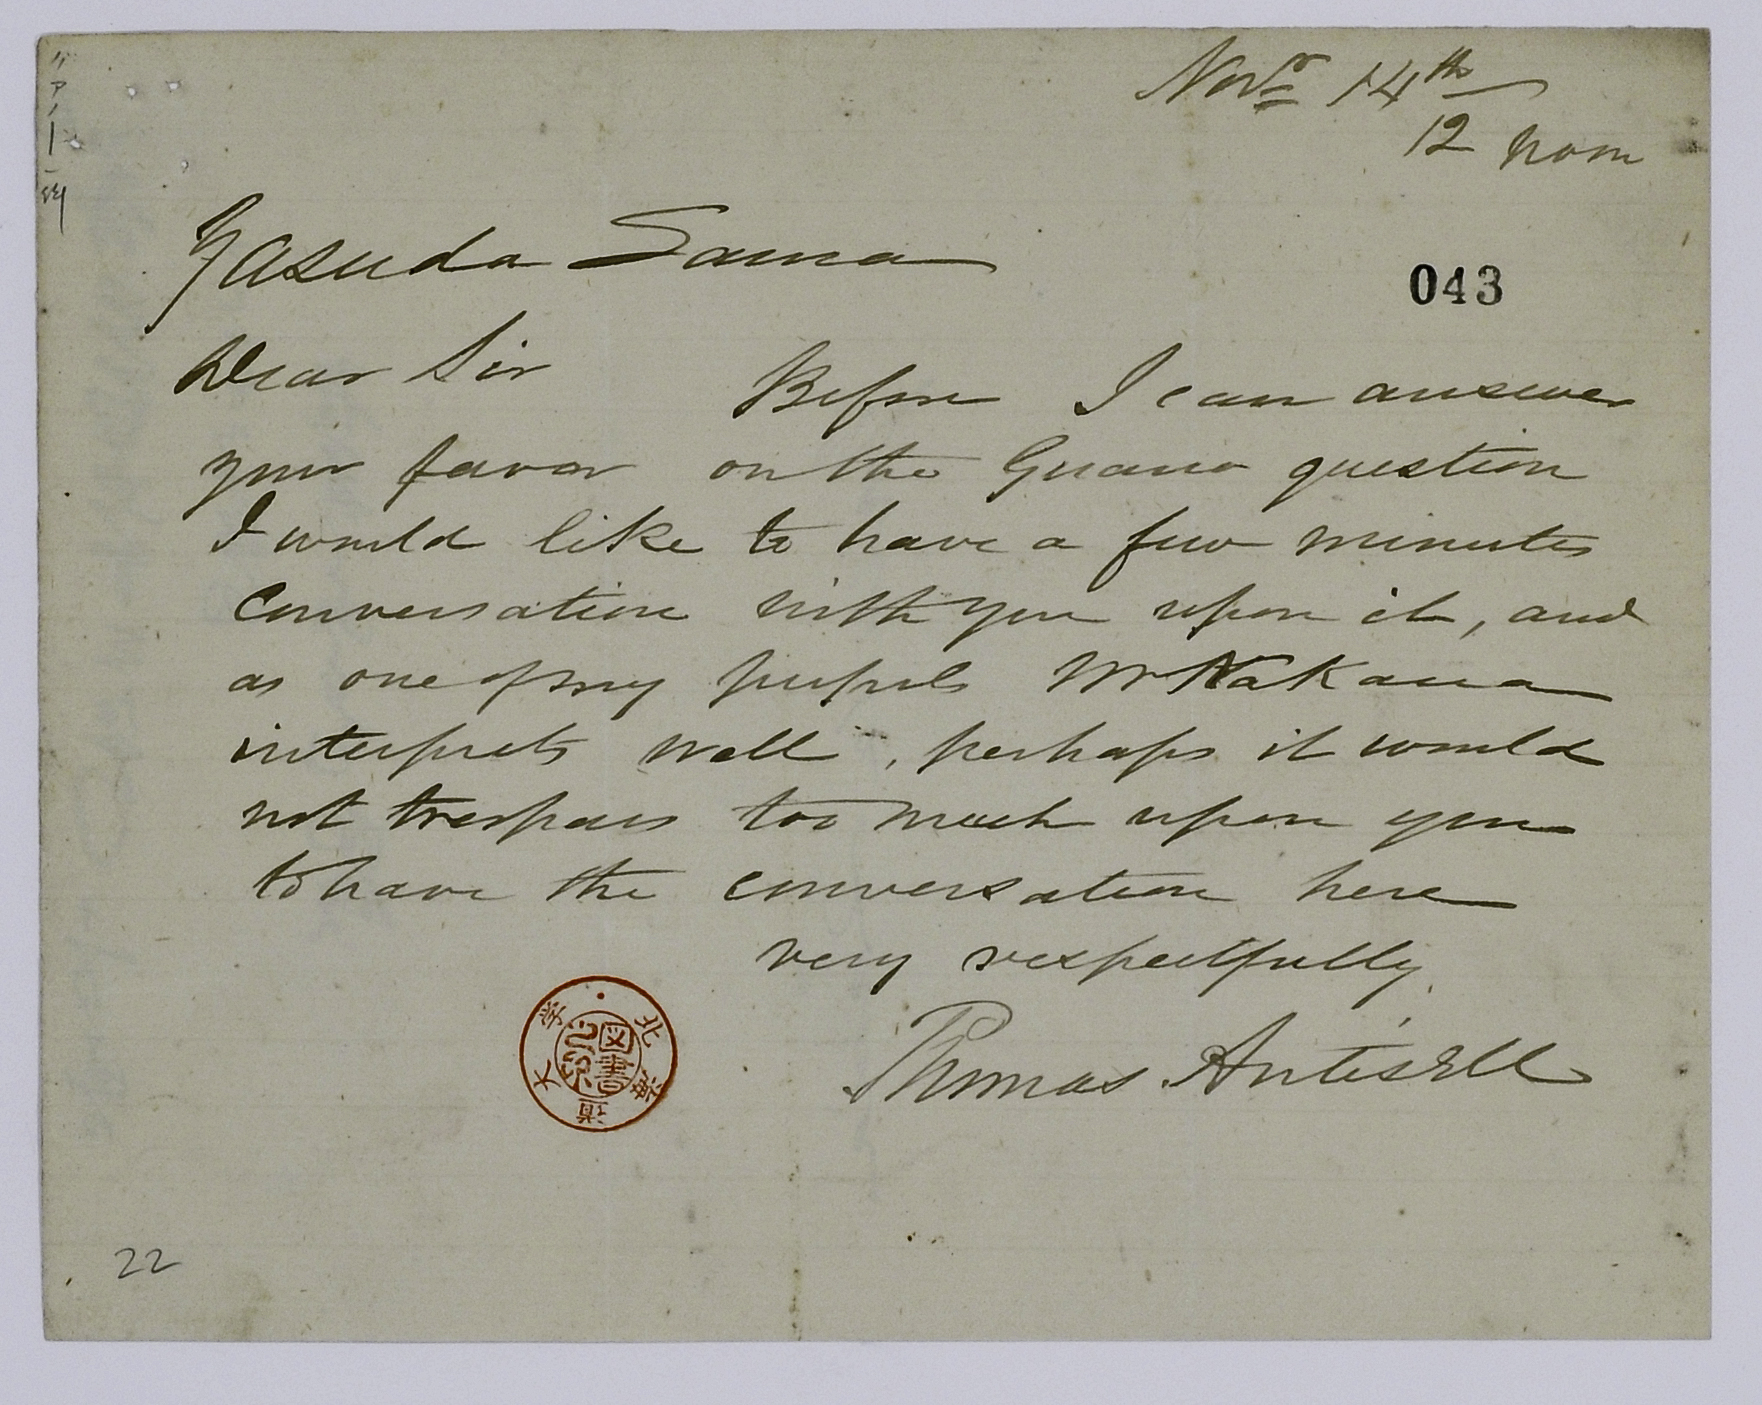 Novr 14th
12 noon
Yasuda Sama
043
Dear Sir Before I can answer
your favor on the Guano question
I would like to have a few minutes
conversation with you upon it, and
as one of my pupils Mr Nakana
interprets well, perhaps it would
not trespass too much upon you
to have the conversation here
very respectfully
Thomas Antisell
北海道大学
図書
22